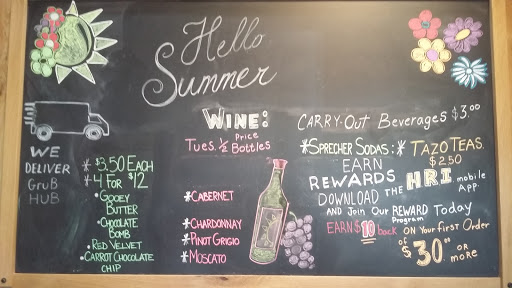 Hello
Summer
WE
DELIVER
GruB
HUB
* $3.50 EACH
* 4 FOR $12
• GOOEY
BUTTER
• CHOCOLATE
BOMB
• RED VELVET
• CARROT CHOCOLATE
CHIP
WINE:
Tues. ½ Price Bottles
*CABERNET
*CHARDONNAY
*PINOT GRIGIO
*MOSCATO
CARRY-OUT Beverages $3.00
*SPRECHER SODAS: * TAZO TEAS.
$2.50
EARN
REWARDS
DOWNLOAD THE HRI mobile App.
AND Join Our REWARD Program Today
EARN $10 back ON Your First Order
of $30.00 OR more